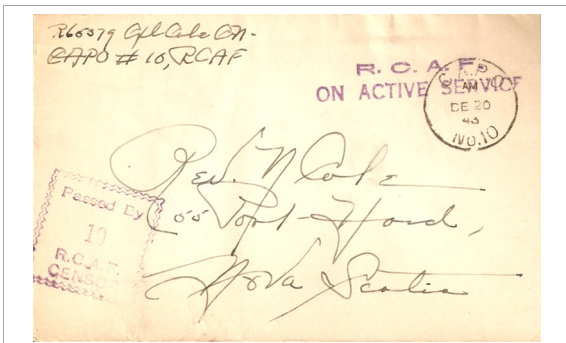 R65079 Cpl Cole C.N.
CAPO # 10, RCAF
R. C. A. F.
ON ACTIVE SERVICE
C.A.P.O.
AM
DE 20
43
NO. 10
Rev. N Cole
Port Hood,
Nova Scotia
Passed By
10
R.C.A.F.
CENSOR